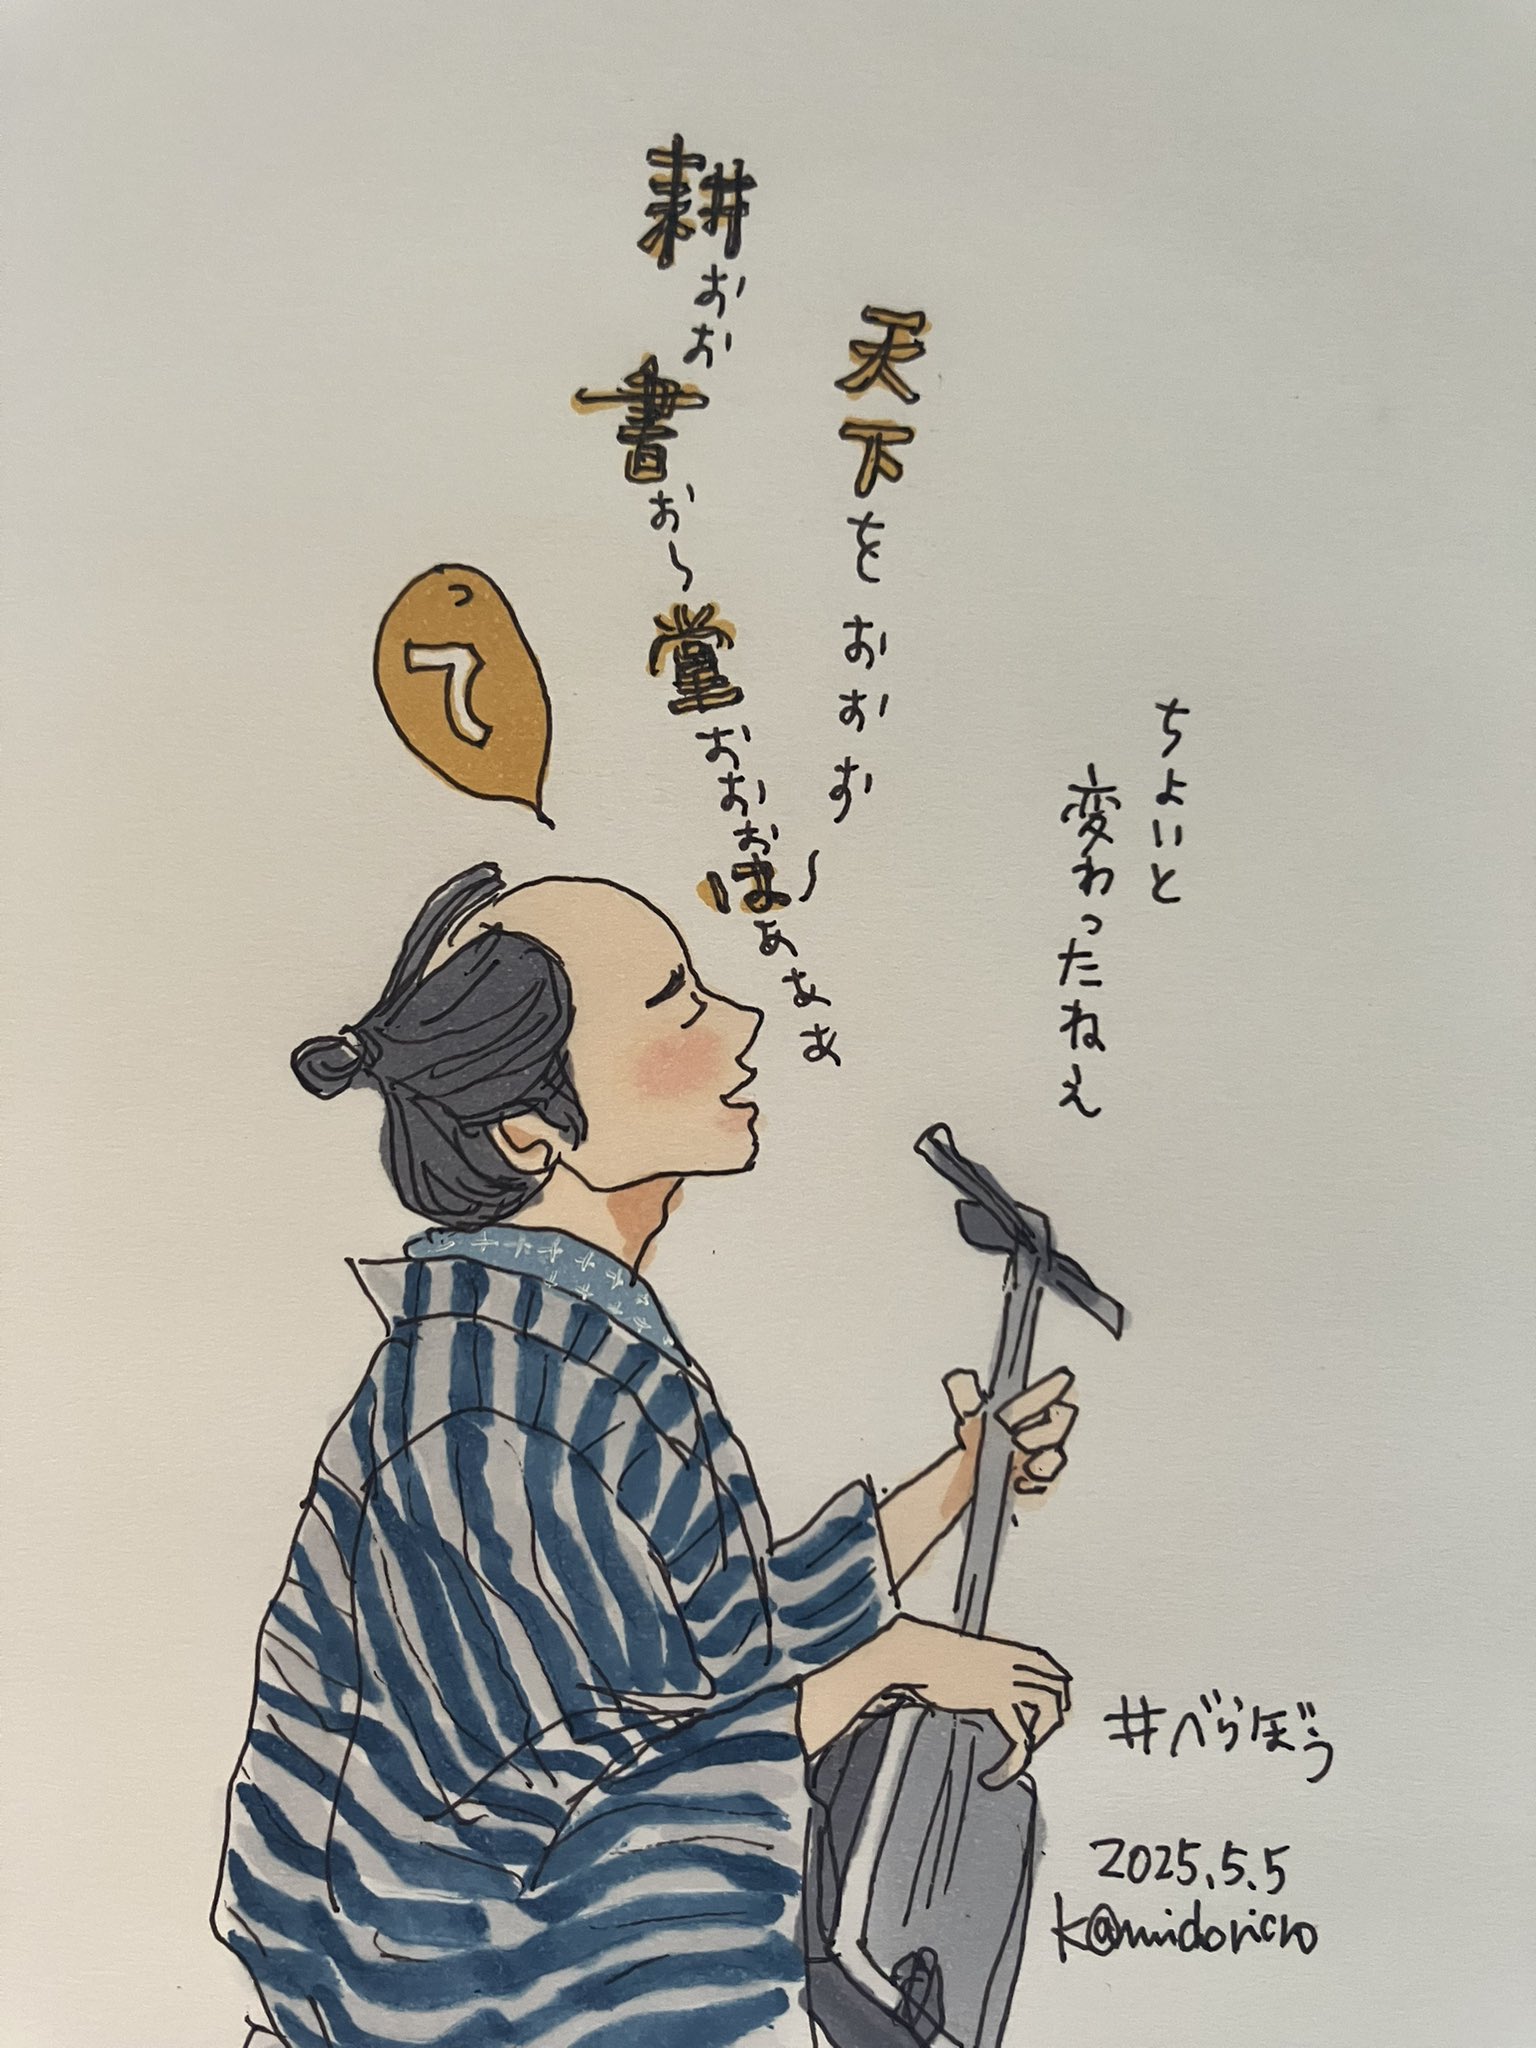 ちょいと
変わったねえ
天下をおおお〜
耕おお書お〜堂おおおはぁぁぁ
って
#べらぼう
2025.5.5
k@midoricro